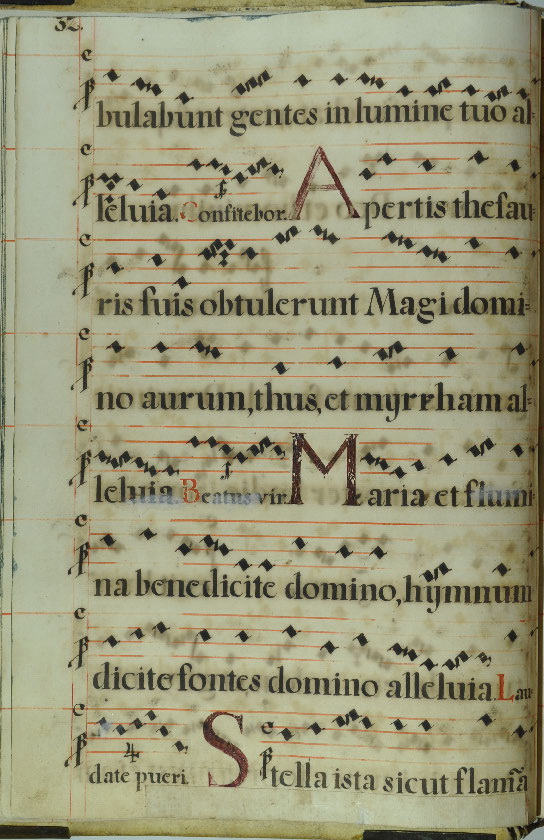 32.
bulabunt gentes in lumine tuo al-
leluia. Confitebor. Apertis thesau
ris suis obtulerunt Magi domi-
no aurum, thus, et myrrham al-
leluia Beatus vir. Maria et flumi
na benedicite domino, hymnum
dicite fontes domino alleluia Lau
date pueri. 4 Stella ista sicut flam̃a